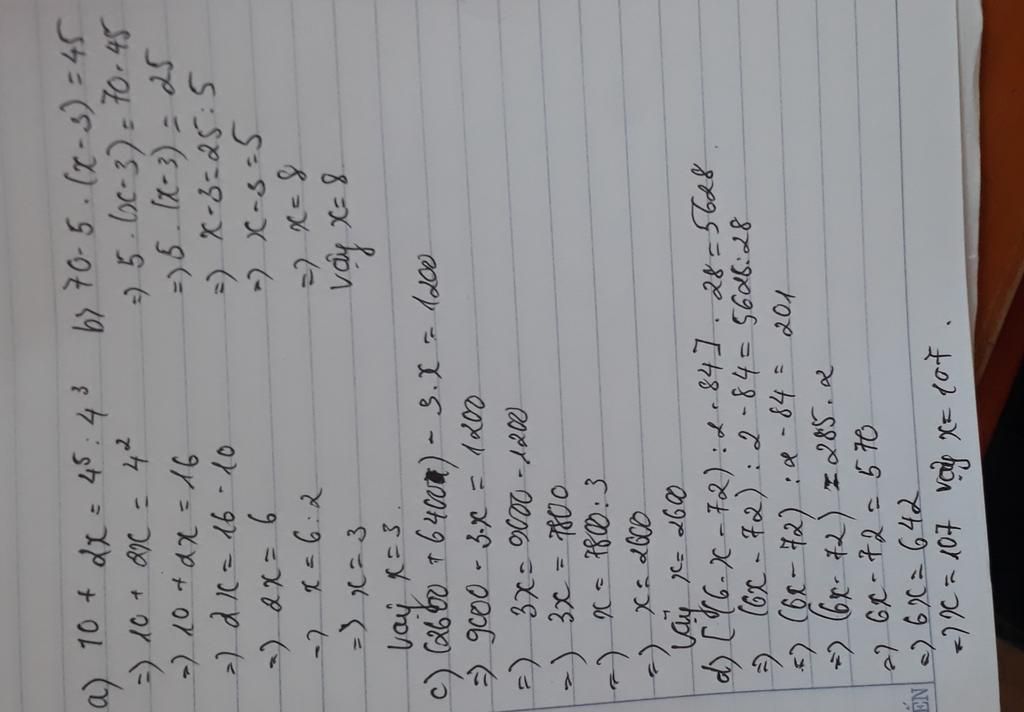 a) 10 + 2x = 4⁵ : 4³
=) 10 + 2x = 4²
=) 10 + 2x = 16
=) 2x = 16 - 10
=) 2x = 6
=) x = 6 : 2
=) x = 3
Vậy x = 3.
b) 70 - 5 . (x - 3) = 45
=) 5 . (x - 3) = 70 - 45
=) 5 . (x - 3) = 25
=) x - 3 = 25 : 5
=) x - 3 = 5
=) x = 8
Vậy x = 8
c) (2600 + 6400) - 3 . x = 1200
=) 9000 - 3 . x = 1200
=) 3x = 9000 - 1200
=) 3x = 7800
=) x = 7800 : 3
=) x = 2600
Vậy x = 2600
d) [(6 . x - 72) : 2 - 84] . 28 = 5628
=) (6x - 72) : 2 - 84 = 5628 : 28
=) (6x - 72) : 2 - 84 = 201
=) (6x - 72) = 285 . 2
=) 6x - 72 = 570
=) 6x = 642
=) x = 107 vậy x = 107.
ẾN